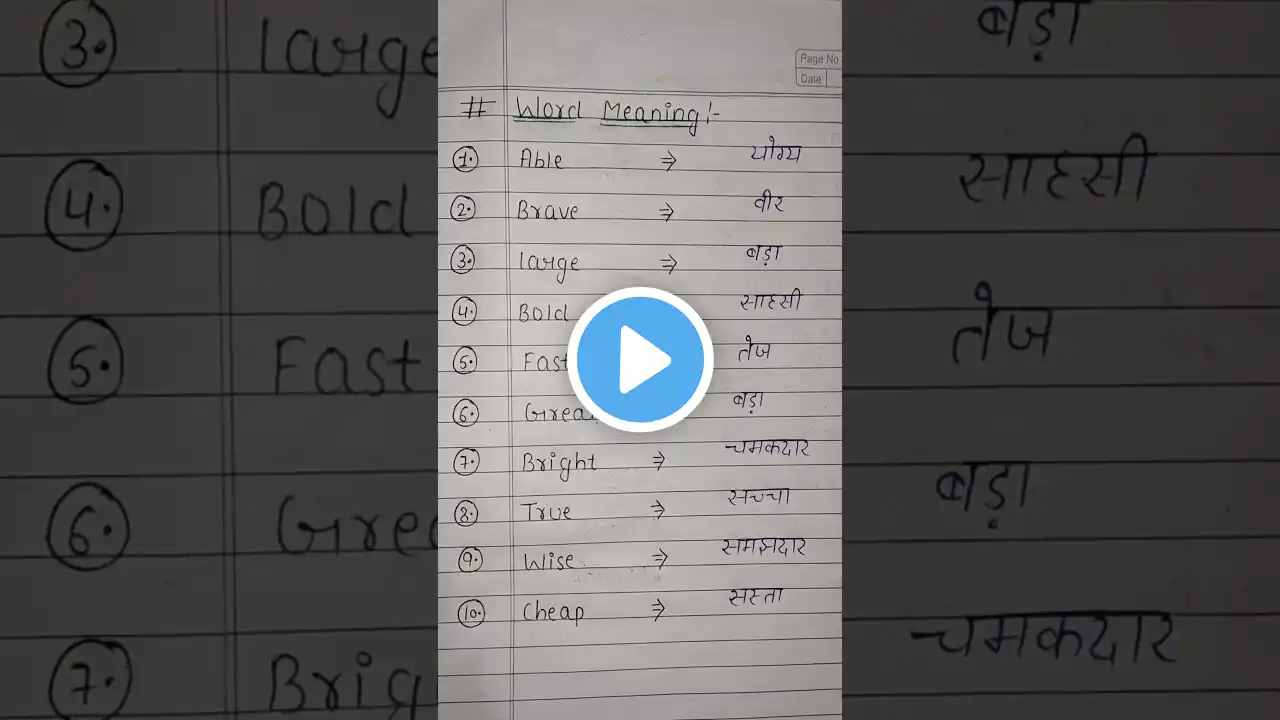 Page No.
Date
# Word Meaning:-
1. Able ⇒ योग्य
2. Brave ⇒ वीर
3. Large ⇒ बड़ा
4. Bold साहसी
5. Fast तेज
6. बड़ा
7. Bright ⇒ चमकदार
8. True ⇒ सच्चा
9. Wise ⇒ समझदार
10. Cheap ⇒ सस्ता
3. Large बड़ा
4. Bold साहसी
5. Fast तेज
6. बड़ा
7. चमकदार